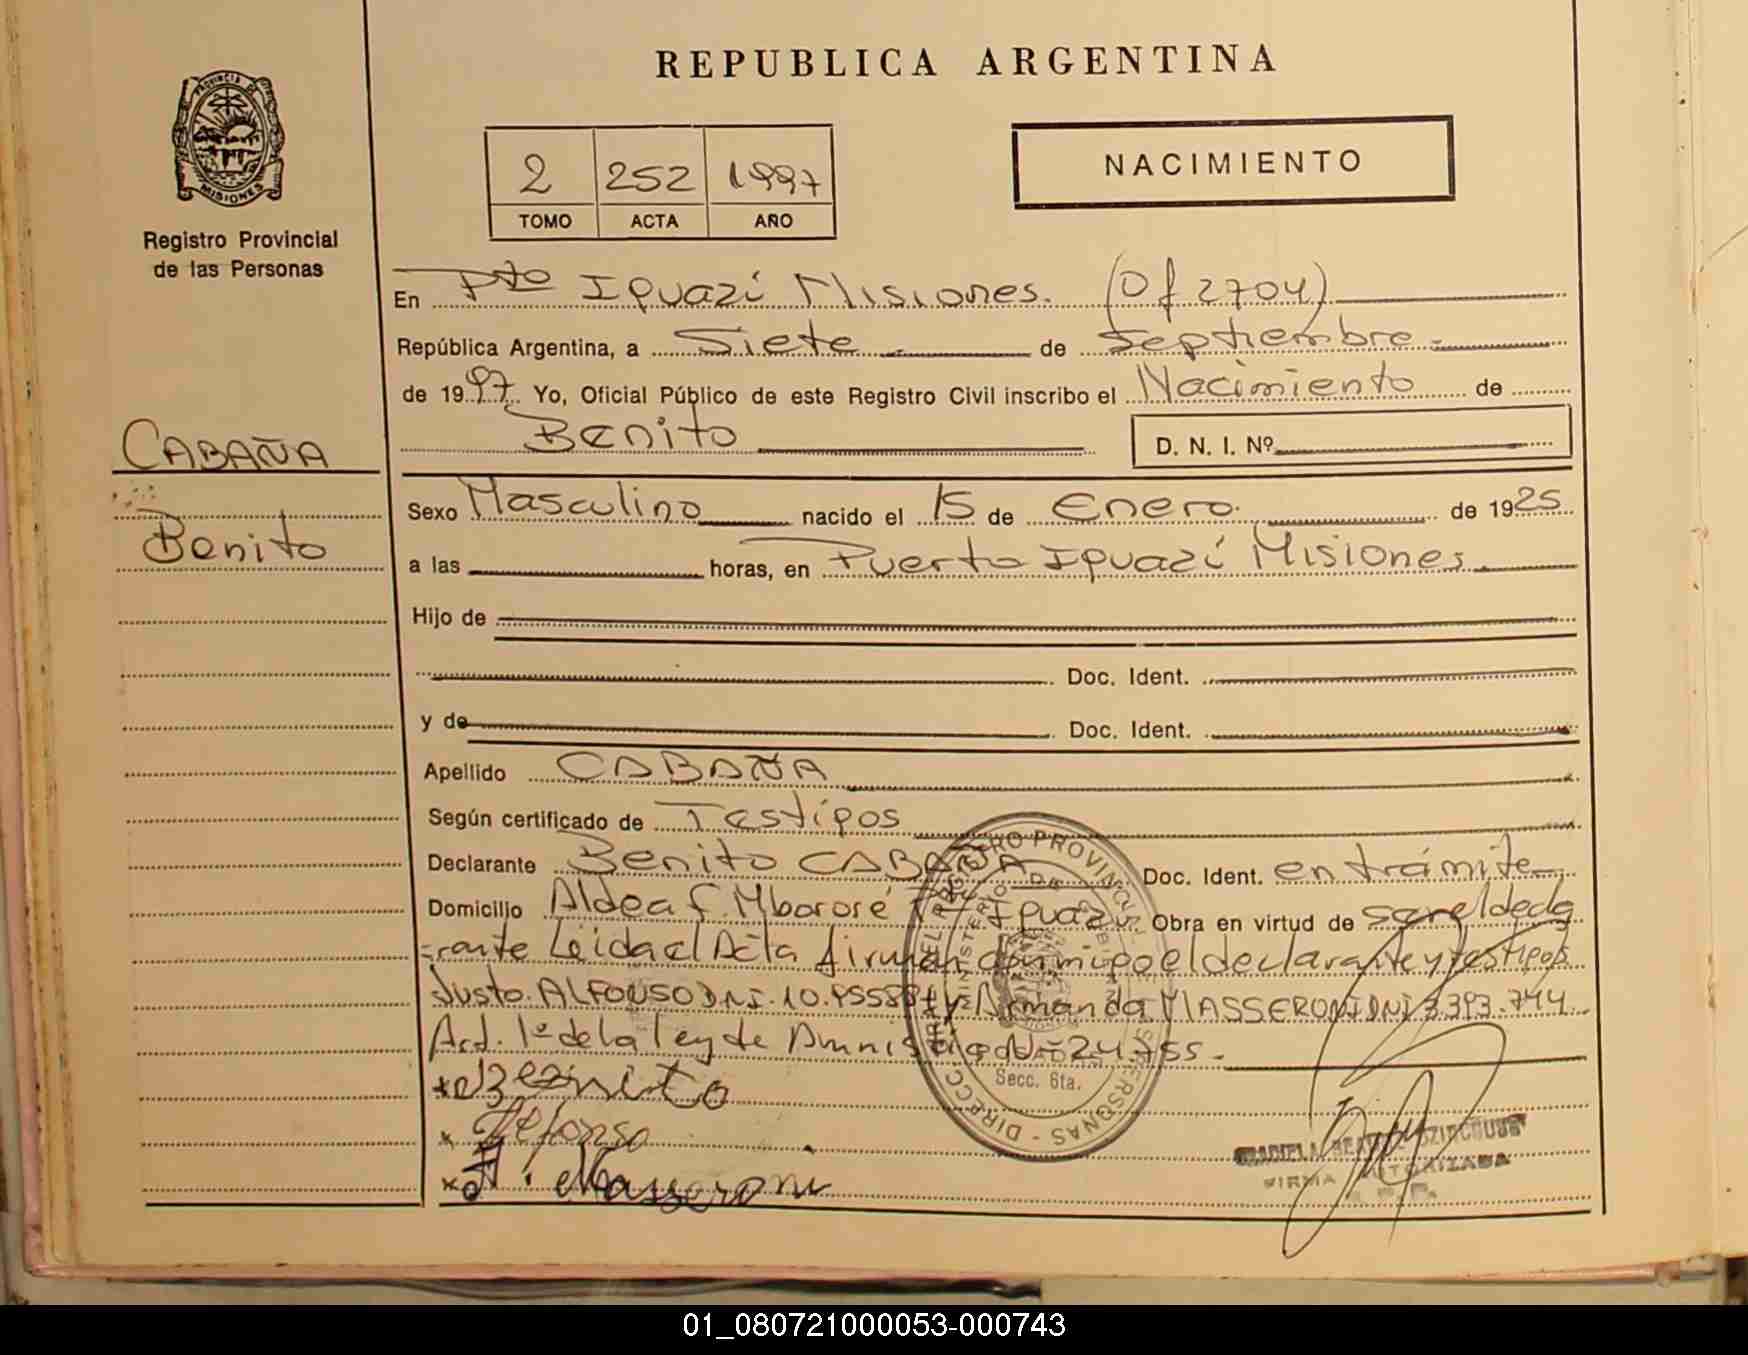 REPUBLICA ARGENTINA
PROVINCIA DE
MISIONES
Registro Provincial
de las Personas
2 252 1997
TOMO ACTA AÑO
NACIMIENTO
En Pto Iguazí Misiones. (Of 2704)
República Argentina, a Siete de Septiembre
de 1997 Yo, Oficial Público de este Registro Civil inscribo el Nacimiento de
Benito D. N. I. Nº
CABAÑA
Benito
Sexo Masculino nacido el 15 de Enero de 1925
a las horas, en Puerto Iguazí Misiones
Hijo de
Doc. Ident.
y de Doc. Ident.
Apellido CABAÑA
Según certificado de Testigos
Declarante Benito CABAÑA Doc. Ident. en trámite
Domicilio Aldea F. Mbororé Iguazú Obra en virtud de ser el decla
rante Leída el Acta firman conmigo el declarante y testigos
Justo ALFONSO DNI. y Armanda MASSERONI DNI 3.393.744
Art. 1º de la ley de Amnistía Nº 24.755.
Secc. 6ta.
x Benito
x Alfonso
x A. Masseroni
FIRMA AUTORIZADA
01_080721000053-000743